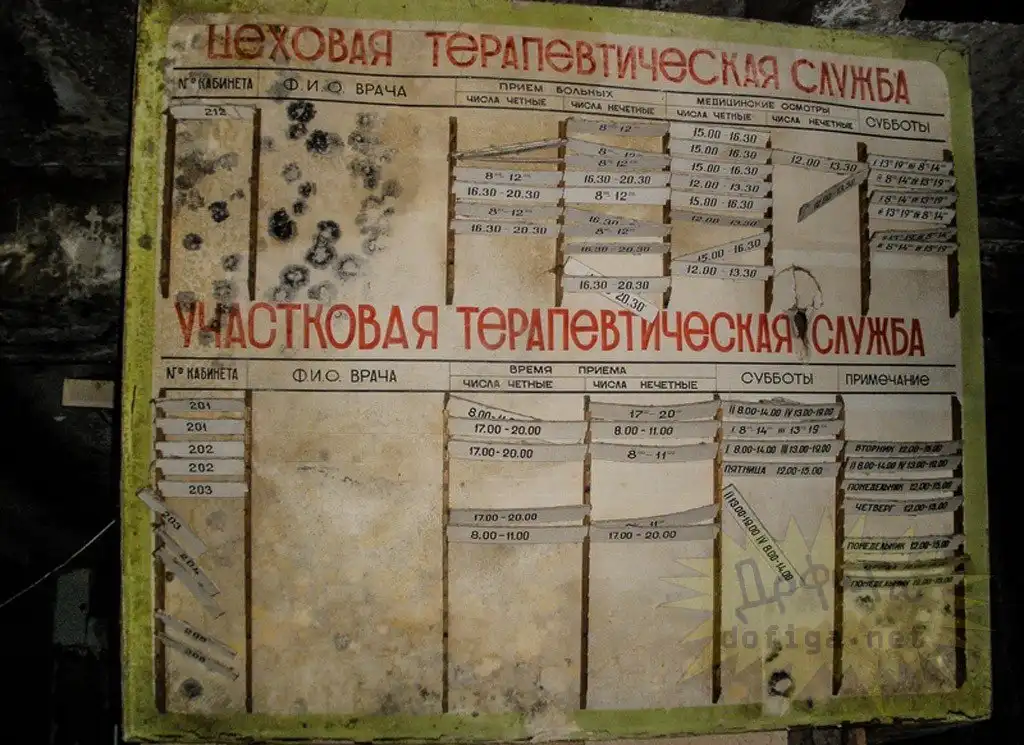 ЦЕХОВАЯ ТЕРАПЕВТИЧЕСКАЯ СЛУЖБА
№ КАБИНЕТА Ф.И.О. ВРАЧА ПРИЕМ БОЛЬНЫХ МЕДИЦИНСКИЕ ОСМОТРЫ СУББОТЫ
ЧИСЛА ЧЕТНЫЕ ЧИСЛА НЕЧЕТНЫЕ ЧИСЛА ЧЕТНЫЕ ЧИСЛА НЕЧЕТНЫЕ
212
8-12 15.00-16.30
15.00-16.30 12.00-13.30 I 13-19 III 8-14
8-12 15.00-16.30
8-12 16.30-20.30 12.00-13.30
16.30-20.30 8-12 15.00-16.30
8-12 16.30 12.00-13.30
16.30-20.30 8-12
16.30-20.30 15.00-16.30
12.00-13.30
16.30-20.30
20.30
УЧАСТКОВАЯ ТЕРАПЕВТИЧЕСКАЯ СЛУЖБА
№ КАБИНЕТА Ф.И.О. ВРАЧА ВРЕМЯ ПРИЕМА СУББОТЫ ПРИМЕЧАНИЕ
ЧИСЛА ЧЕТНЫЕ ЧИСЛА НЕЧЕТНЫЕ
201 8.00-11.00 17-20 II 8.00-14.00 IV 13.00-19.00
201 17.00-20.00 8.00-11.00 I 8-14 III 13-19
202 17.00-20.00 8-11 I 8.00-14.00 III 13.00-19.00 ВТОРНИК 12.00-15.00
202 ПЯТНИЦА 12.00-15.00 II 8.00-14.00 IV 13.00-19.00
203 ПОНЕДЕЛЬНИК 12.00-15.00
203 II 13.00-19.00 IV 8.00-14.00 ЧЕТВЕРГ 12.00-15.00
17.00-20.00
8.00-11.00 17.00-20.00 ПОНЕДЕЛЬНИК 12.00-15.00
204
ПОНЕДЕЛЬНИК 12.00-15.00
dofiga.net